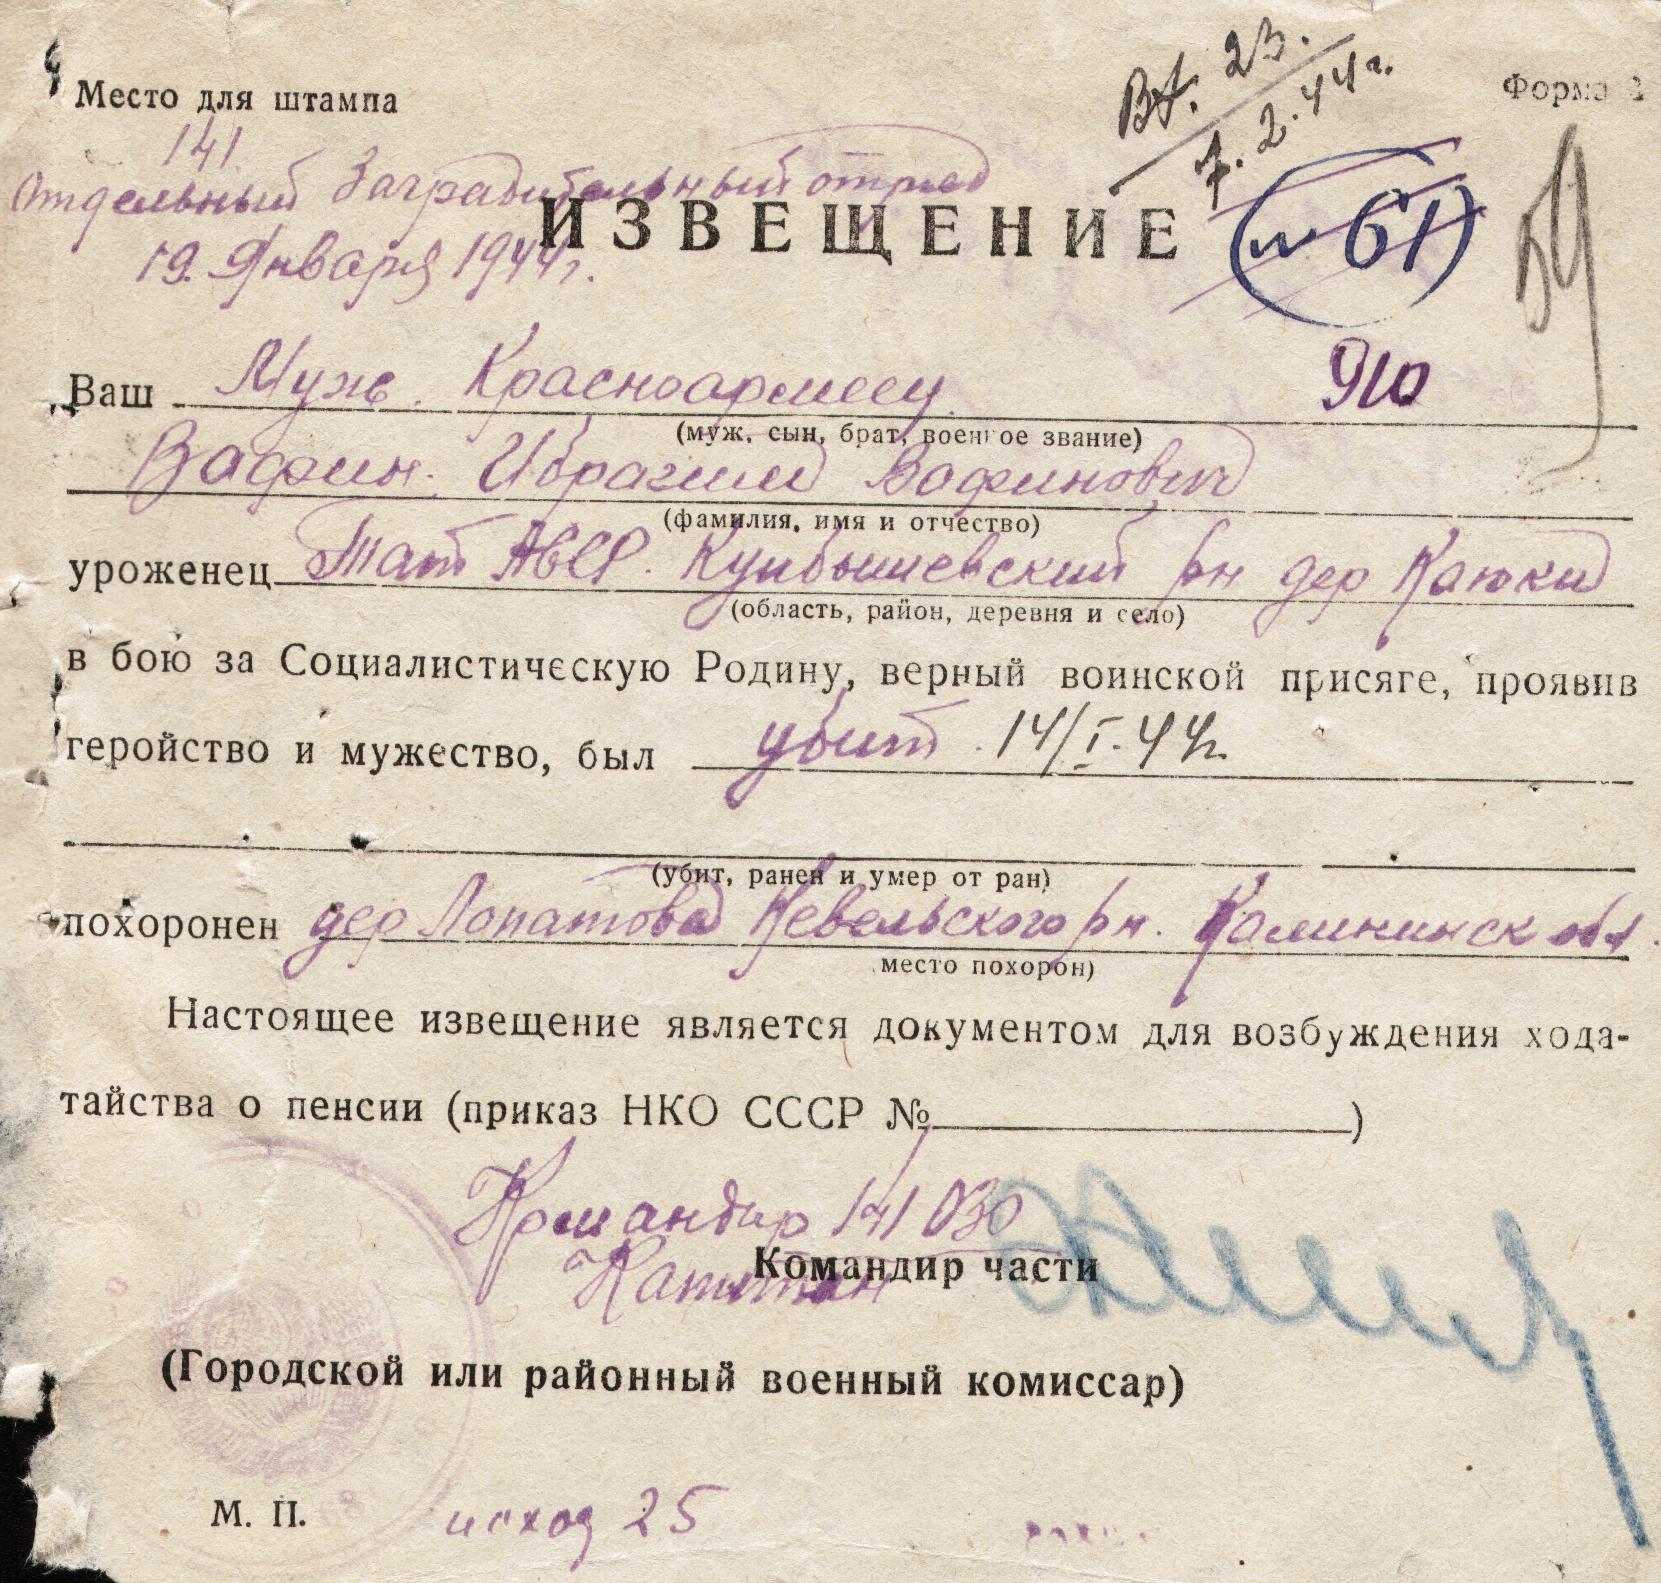 Место для штампа
Вх. 23.
7.2.44г.
Форма 2
141
Отдельный Заградительный отряд
19. Января 1944г.
ИЗВЕЩЕНИЕ
(№ 61)
910
Ваш Муж. Красноармеец
(муж, сын, брат, военное звание)
Вафин. Ибрагим Вафинович
(фамилия, имя и отчество)
уроженец Тат АССР. Куйбышевский рн дер Каюки
(область, район, деревня и село)
в бою за Социалистическую Родину, верный воинской присяге, проявив
геройство и мужество, был убит. 14/I.44г.
(убит, ранен и умер от ран)
похоронен дер Лопатова Невельского рн. Калининск обл.
место похорон)
Настоящее извещение является документом для возбуждения хода-
тайства о пенсии (приказ НКО СССР № )
Командир 141 ОЗО
Капитан
Командир части
(Городской или районный военный комиссар)
М. П.
исход 25